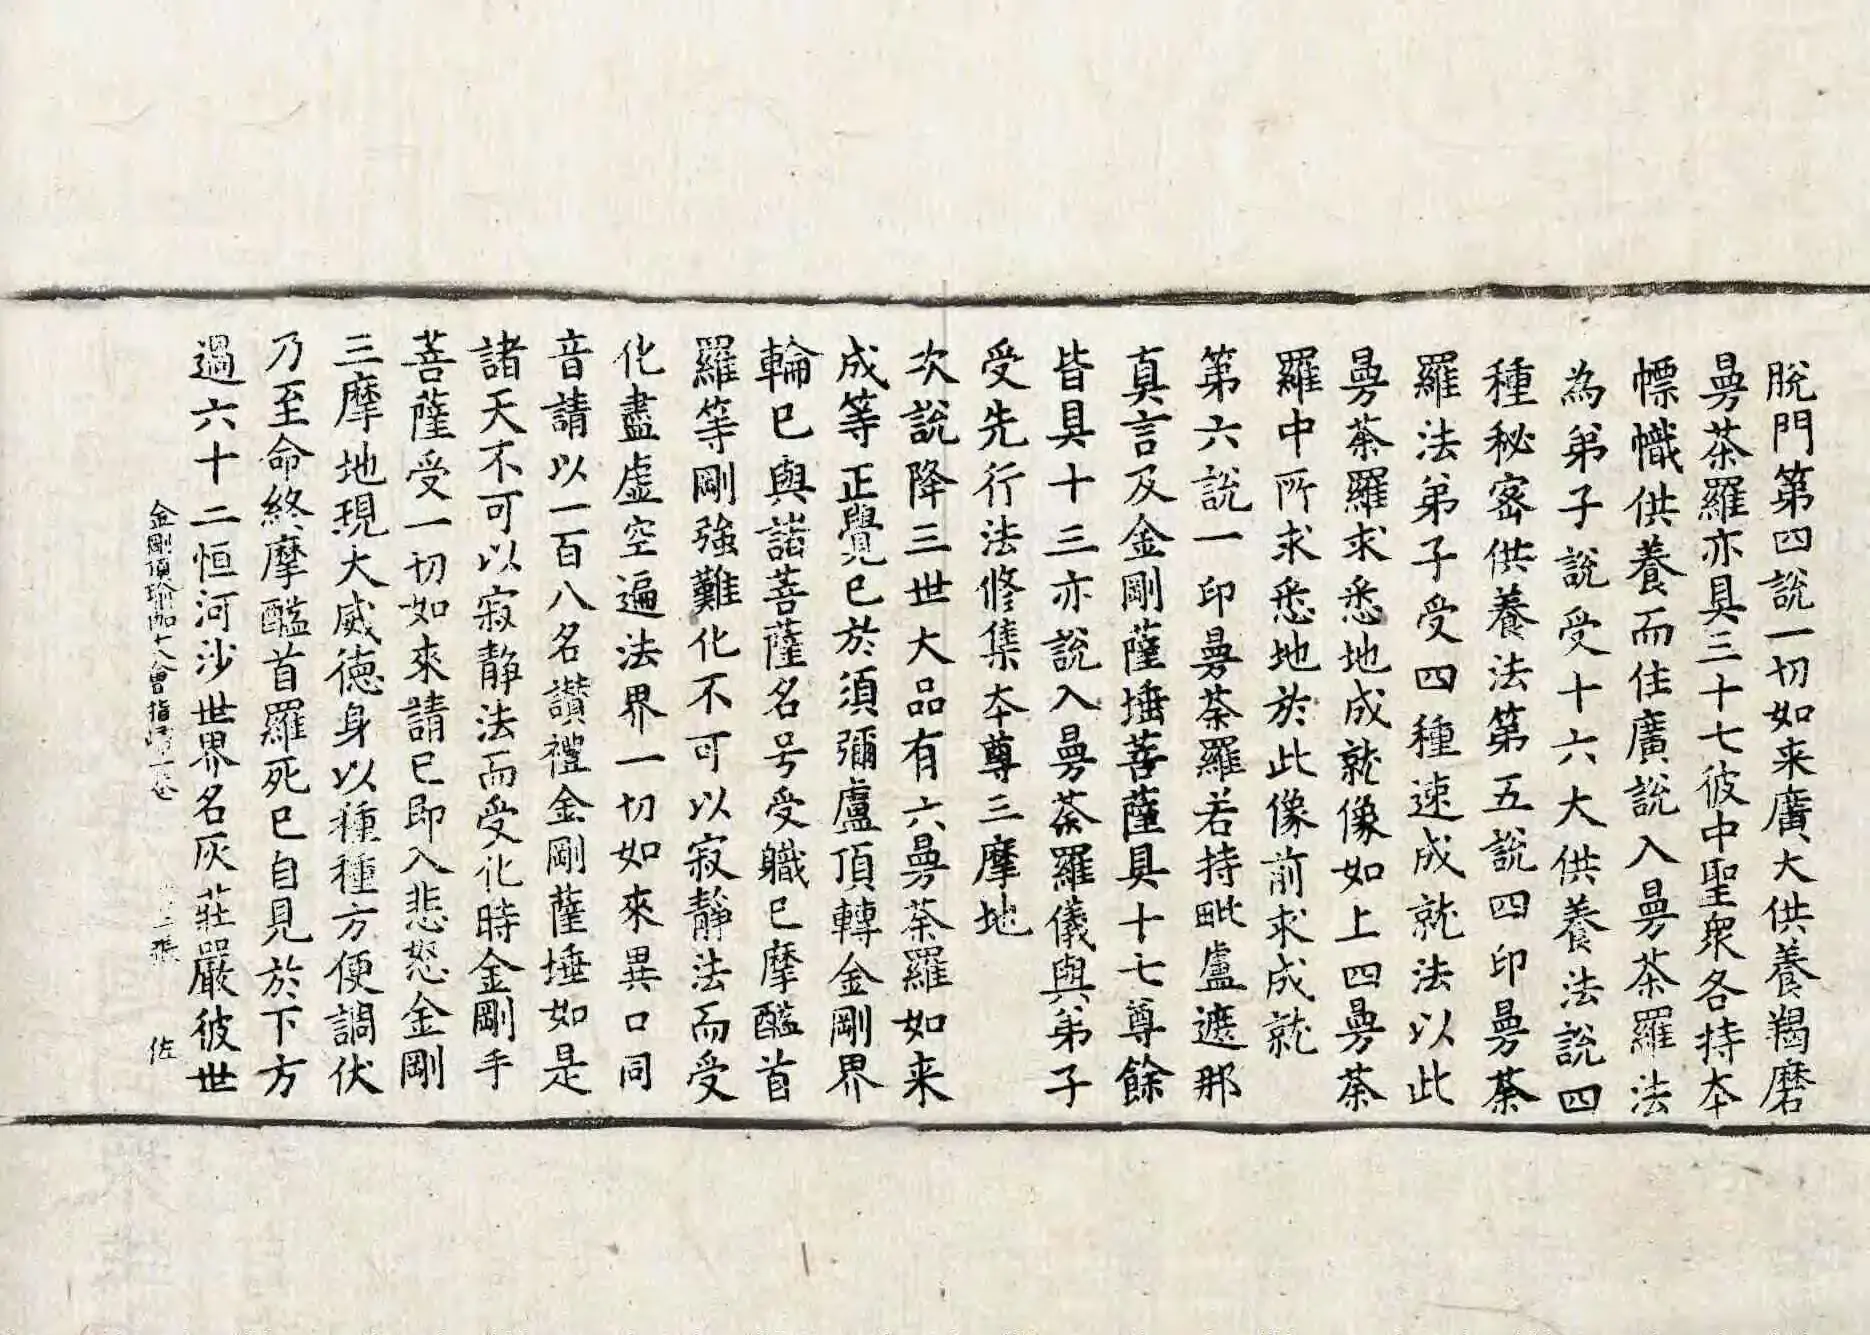 脫門第四說一切如来廣大供養羯磨
曼茶羅亦具三十七彼中聖衆各持本
幖幟供養而住廣說入曼茶羅法
為弟子說受十六大供養法說四
種秘密供養法第五說四印曼荼
羅法弟子受四種速成就法以此
曼荼羅求悉地成就像如上四曼荼
羅中所求悉地於此像前求成就
第六說一印曼荼羅若持毗盧遮那
真言及金剛薩埵菩薩具十七尊餘
皆具十三亦說入曼荼羅儀與弟子
受先行法修集本尊三摩地
次說降三世大品有六曼荼羅如来
成等正覺已於須彌盧頂轉金剛界
輪已與諸菩薩名号受職已摩醯首
羅等剛強難化不可以寂靜法而受
化盡虛空遍法界一切如來異口同
音請以一百八名讚禮金剛薩埵如是
諸天不可以寂靜法而受化時金剛手
菩薩受一切如來請已即入悲怒金剛
三摩地現大威德身以種種方便調伏
乃至命終摩醯首羅死已自見於下方
過六十二恒河沙世界名灰莊嚴彼世
金剛頂瑜伽大會指歸一卷 張 佐